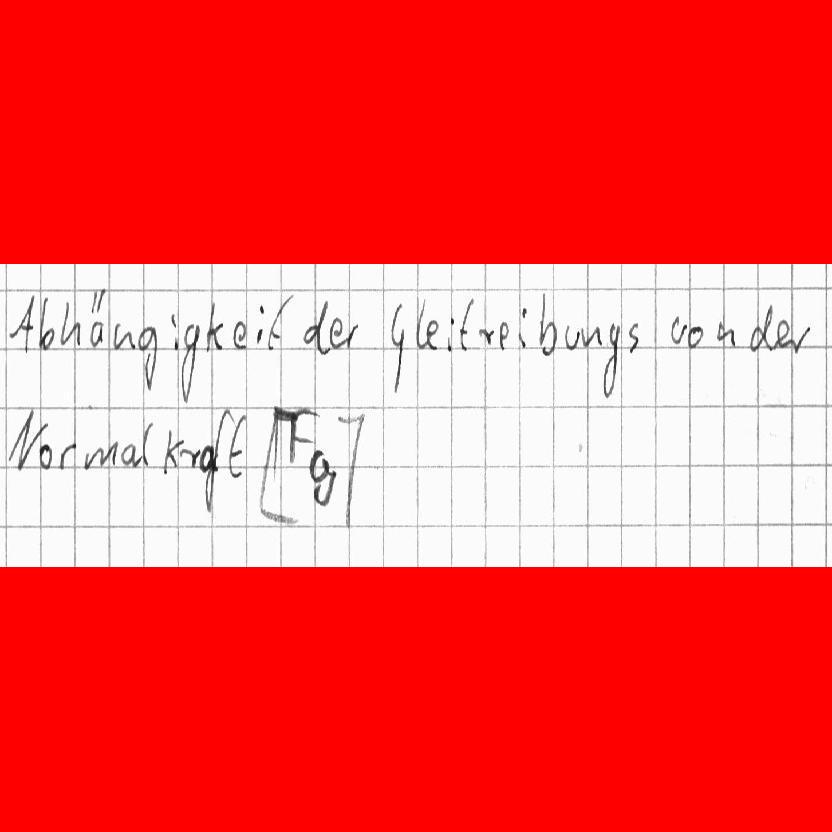 Abhängigkeit der Gleitreibungs von der
Normalkraft [Fg]